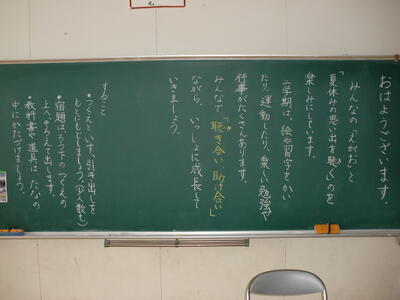 おはようございます。
みんなの「えがお」と
「夏休みの思い出を聴く」のを
楽しみにしています。
二学期は、絵や習字をかい
たり、運動したり、楽しい勉強や
行事がたくさんあります。
みんなで「聴き合い 助け合い」
ながら、いっしょに成長して
いきましょう。
すること
・つくえといす、引き出しを
もとにもどしましょう。(少人数も)
・宿題はろう下のつくえの
上へそろえて出します。
・教科書や道具は、たなの
中にかたづけましょう。